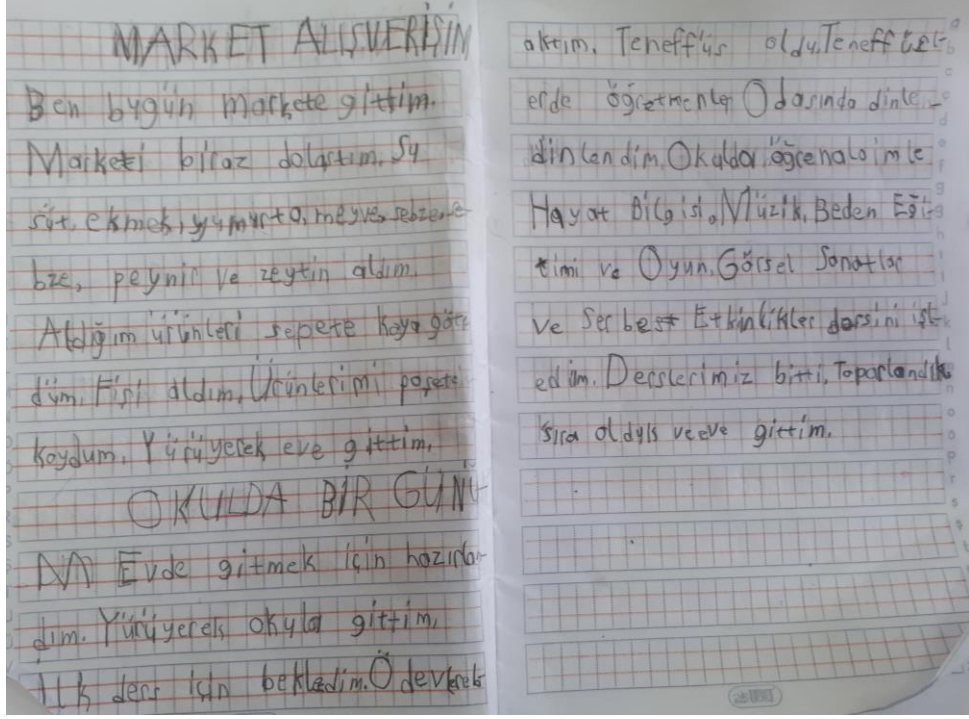 MARKET ALIŞVERİŞİM
Ben bugün markete gittim.
Marketi biraz dolaştım. Su
süt, ekmek, yumurta, meyve, sebze, se
bze, peynir ve zeytin aldım.
Aldığım ürünleri sepete koya götü
düm. Fişi aldım. Ürünlerimi poşete
koydum. Yürüyerek eve gittim.
OKULDA BİR GÜNÜ
Evde gitmek için hazırlan
dım. Yürüyerek okula gittim.
İlk ders için bekledim. Ödev
Teneffüs oldu. Teneffüsl-
erde öğretmenler Odasında dinle-
dinlendim. Okulda
Hayat Bilgisi, Müzik, Beden Eği-
timi ve Oyun, Görsel Sanatlar
ve Serbest Etkinlikler dersini işl-
edim. Derslerimiz bitti. Toparlandık
sıra olduk ve eve gittim.